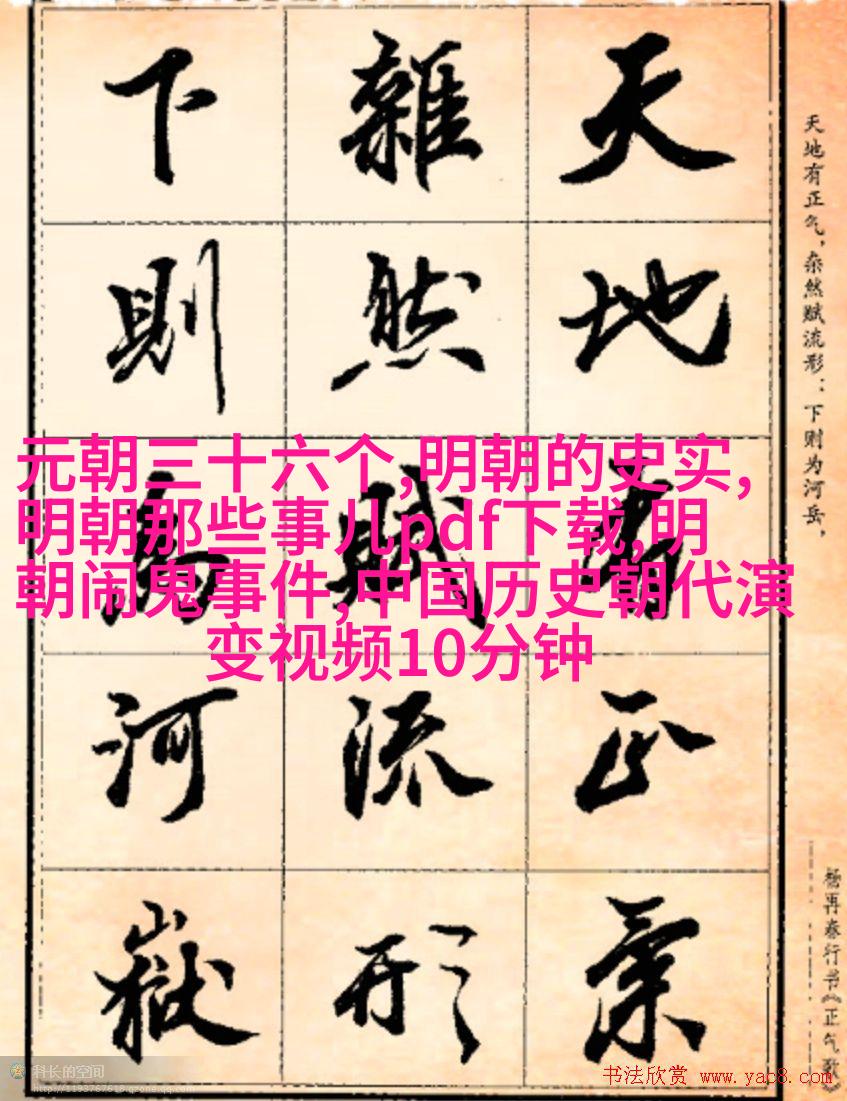 天地有正氣
雜然賦流形
下則為河嶽
天地有正气，杂然赋流形：下则为河岳，
杨再春行书《正气歌》
元朝三十六个,明朝的史实,
明朝那些事儿pdf下载,明
朝闹鬼事件,中国历史朝代演
变视频10分钟
科长的空间
http://1193767618.qzone.qq.com
书法欣赏 www.yac8.com